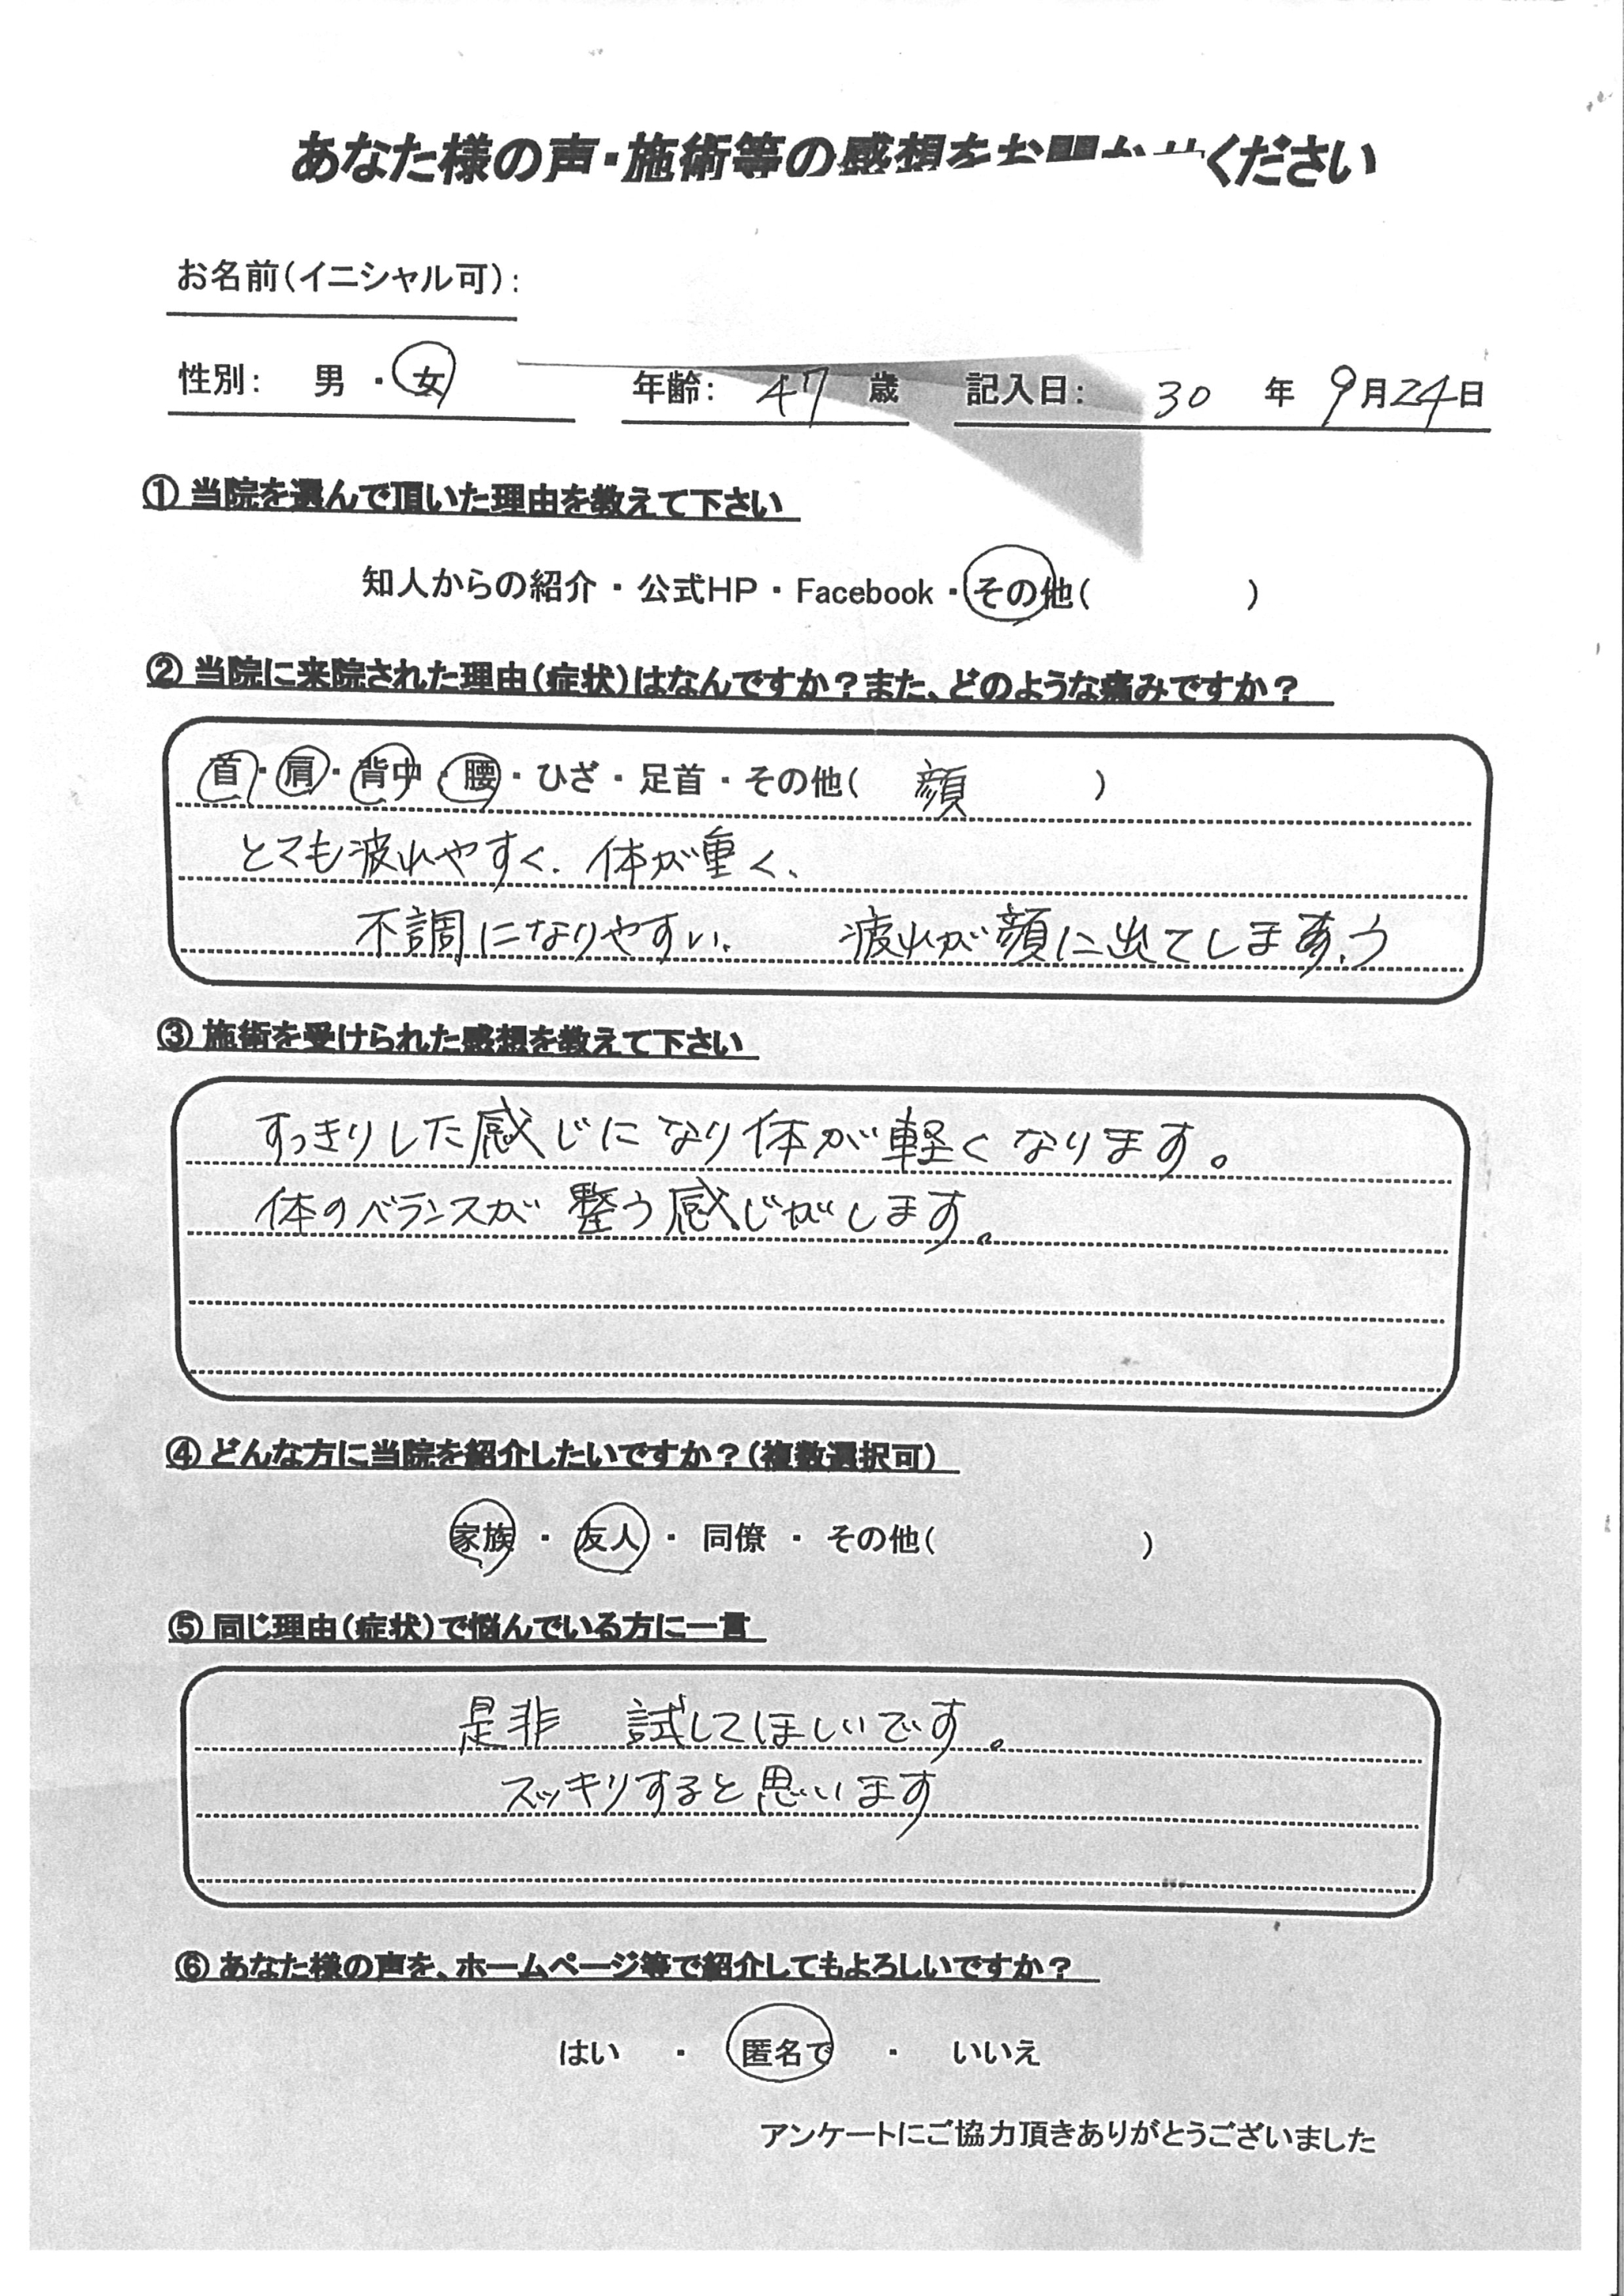 あなた様の声・施術等の感想をお聞かせください
お名前(イニシャル可):
性別: 男 ・ 女 年齢: 47 歳 記入日: 30 年 9月24日
① 当院を選んで頂いた理由を教えて下さい
知人からの紹介 ・ 公式HP ・ Facebook ・ その他( )
② 当院に来院された理由(症状)はなんですか?また、どのような痛みですか?
首 ・ 肩 ・ 背中 ・ 腰 ・ ひざ ・ 足首 ・ その他( 顔 )
とても疲れやすく、体が重く、
不調になりやすい、 疲れが顔に出てしまう
③ 施術を受けられた感想を教えて下さい
すっきりした感じになり体が軽くなります。
体のバランスが整う感じがします。
④ どんな方に当院を紹介したいですか?(複数選択可)
家族 ・ 友人 ・ 同僚 ・ その他( )
⑤ 同じ理由(症状)で悩んでいる方に一言
是非 試してほしいです。
スッキリすると思います
⑥ あなた様の声を、ホームページ等で紹介してもよろしいですか?
はい ・ 匿名で ・ いいえ
アンケートにご協力頂きありがとうございました